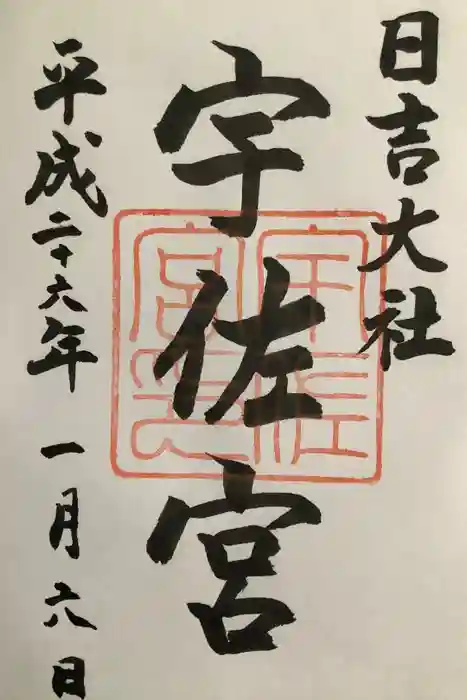 日吉大社
宇佐宮
宇佐宮印
平成二十六年 一月六日